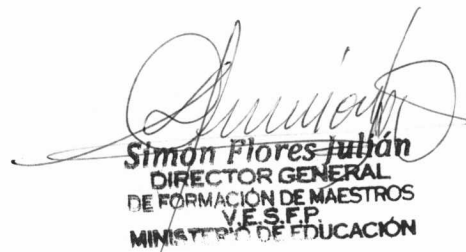 Simón Flores Julián
DIRECTOR GENERAL
DE FORMACIÓN DE MAESTROS
V.E.S.F.P.
MINISTERIO DE EDUCACIÓN